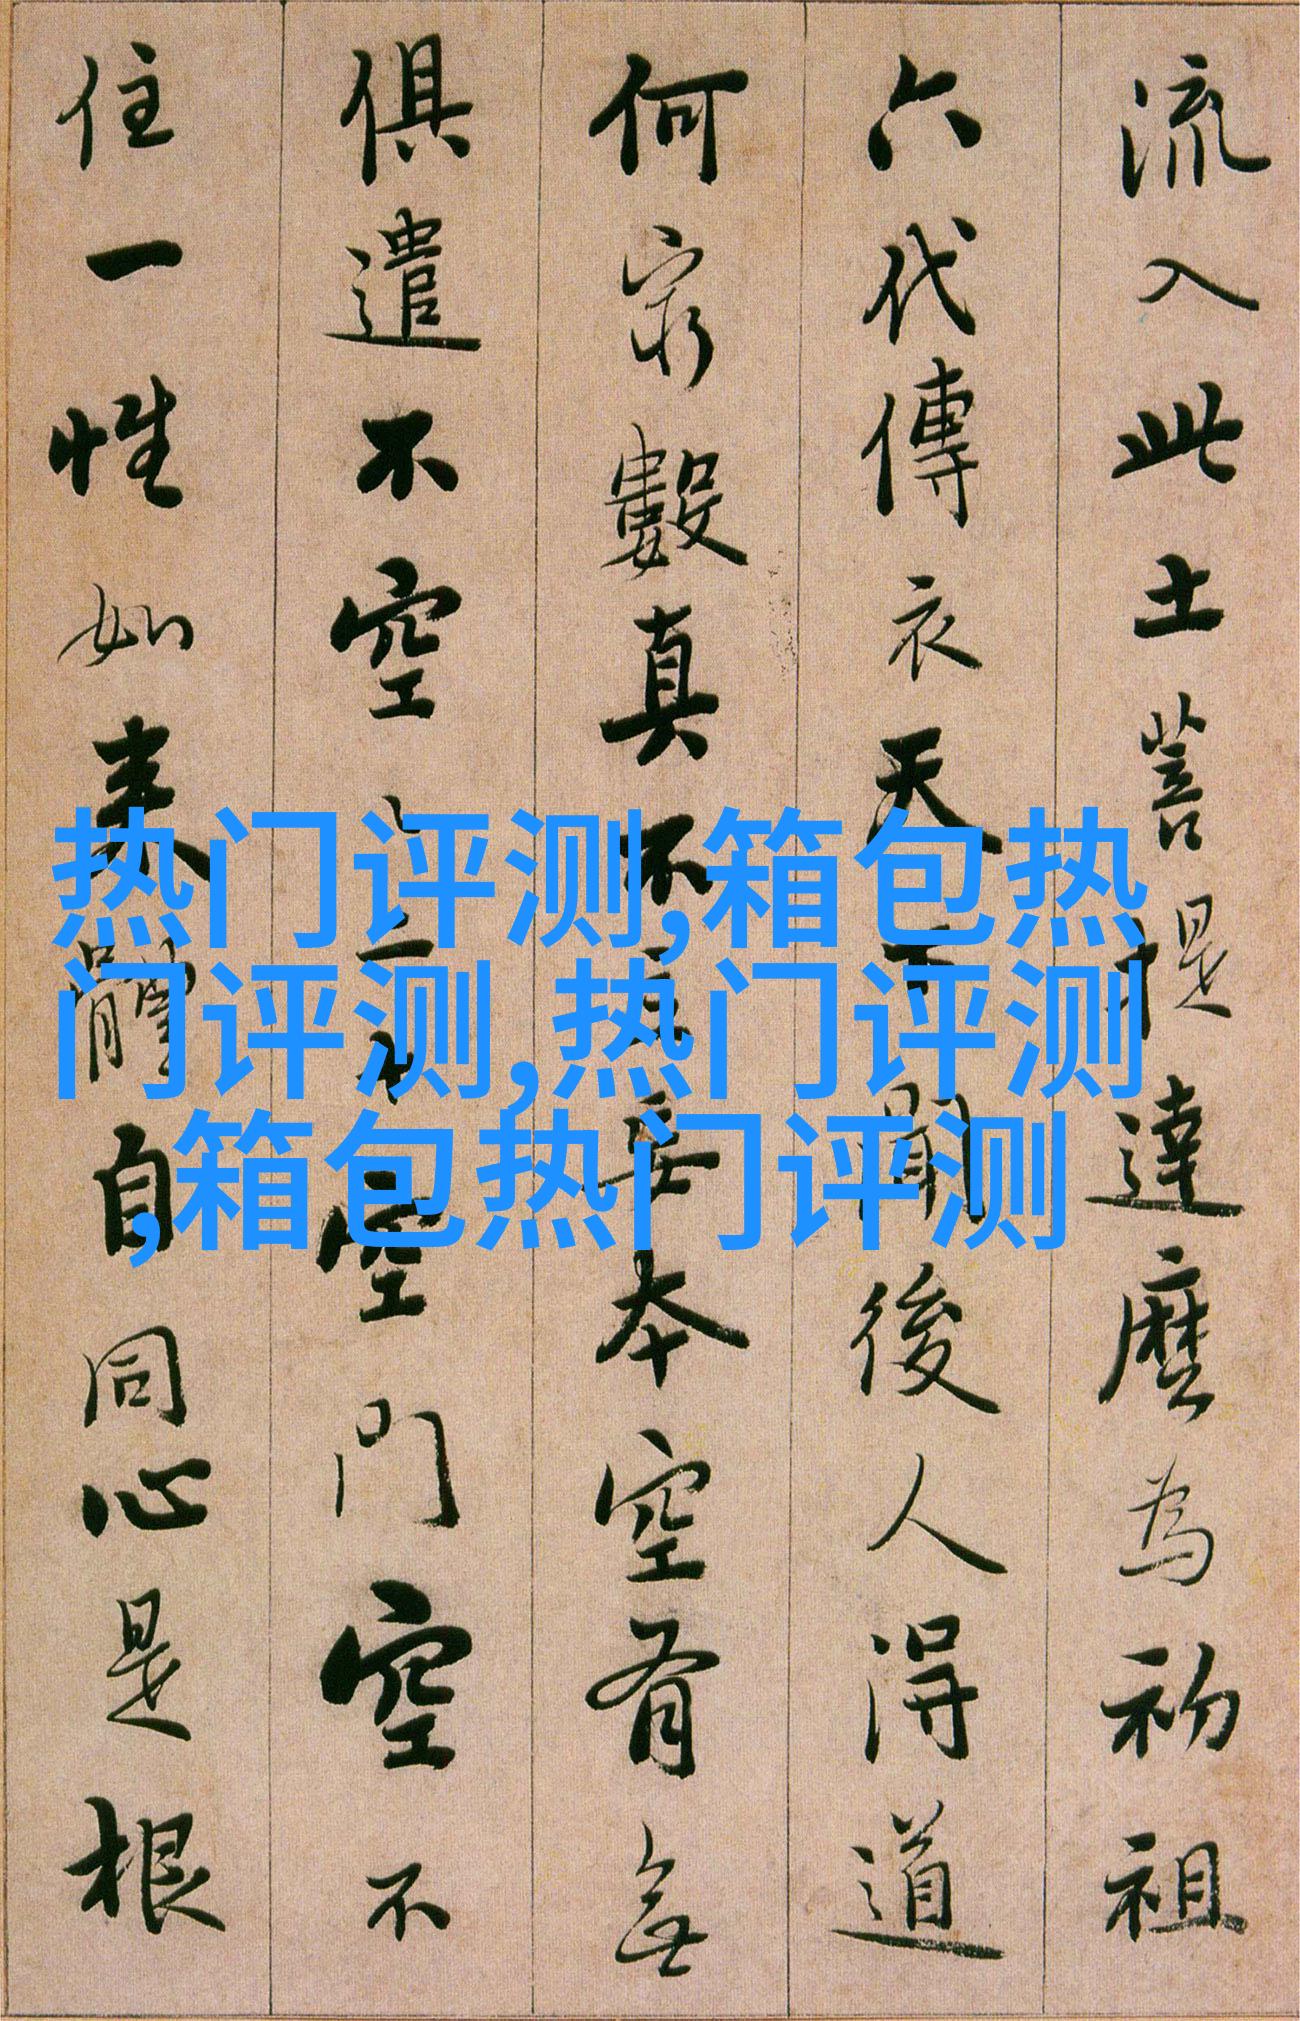 流入此土菩提達磨為初祖
六代傳衣天下聞後人得道
何窮數真不立妄本空有無
俱遣不空空二十空門空不
住一性如来體自同心是根
热门评测,箱包热
门评测,热门评测
,箱包热门评测